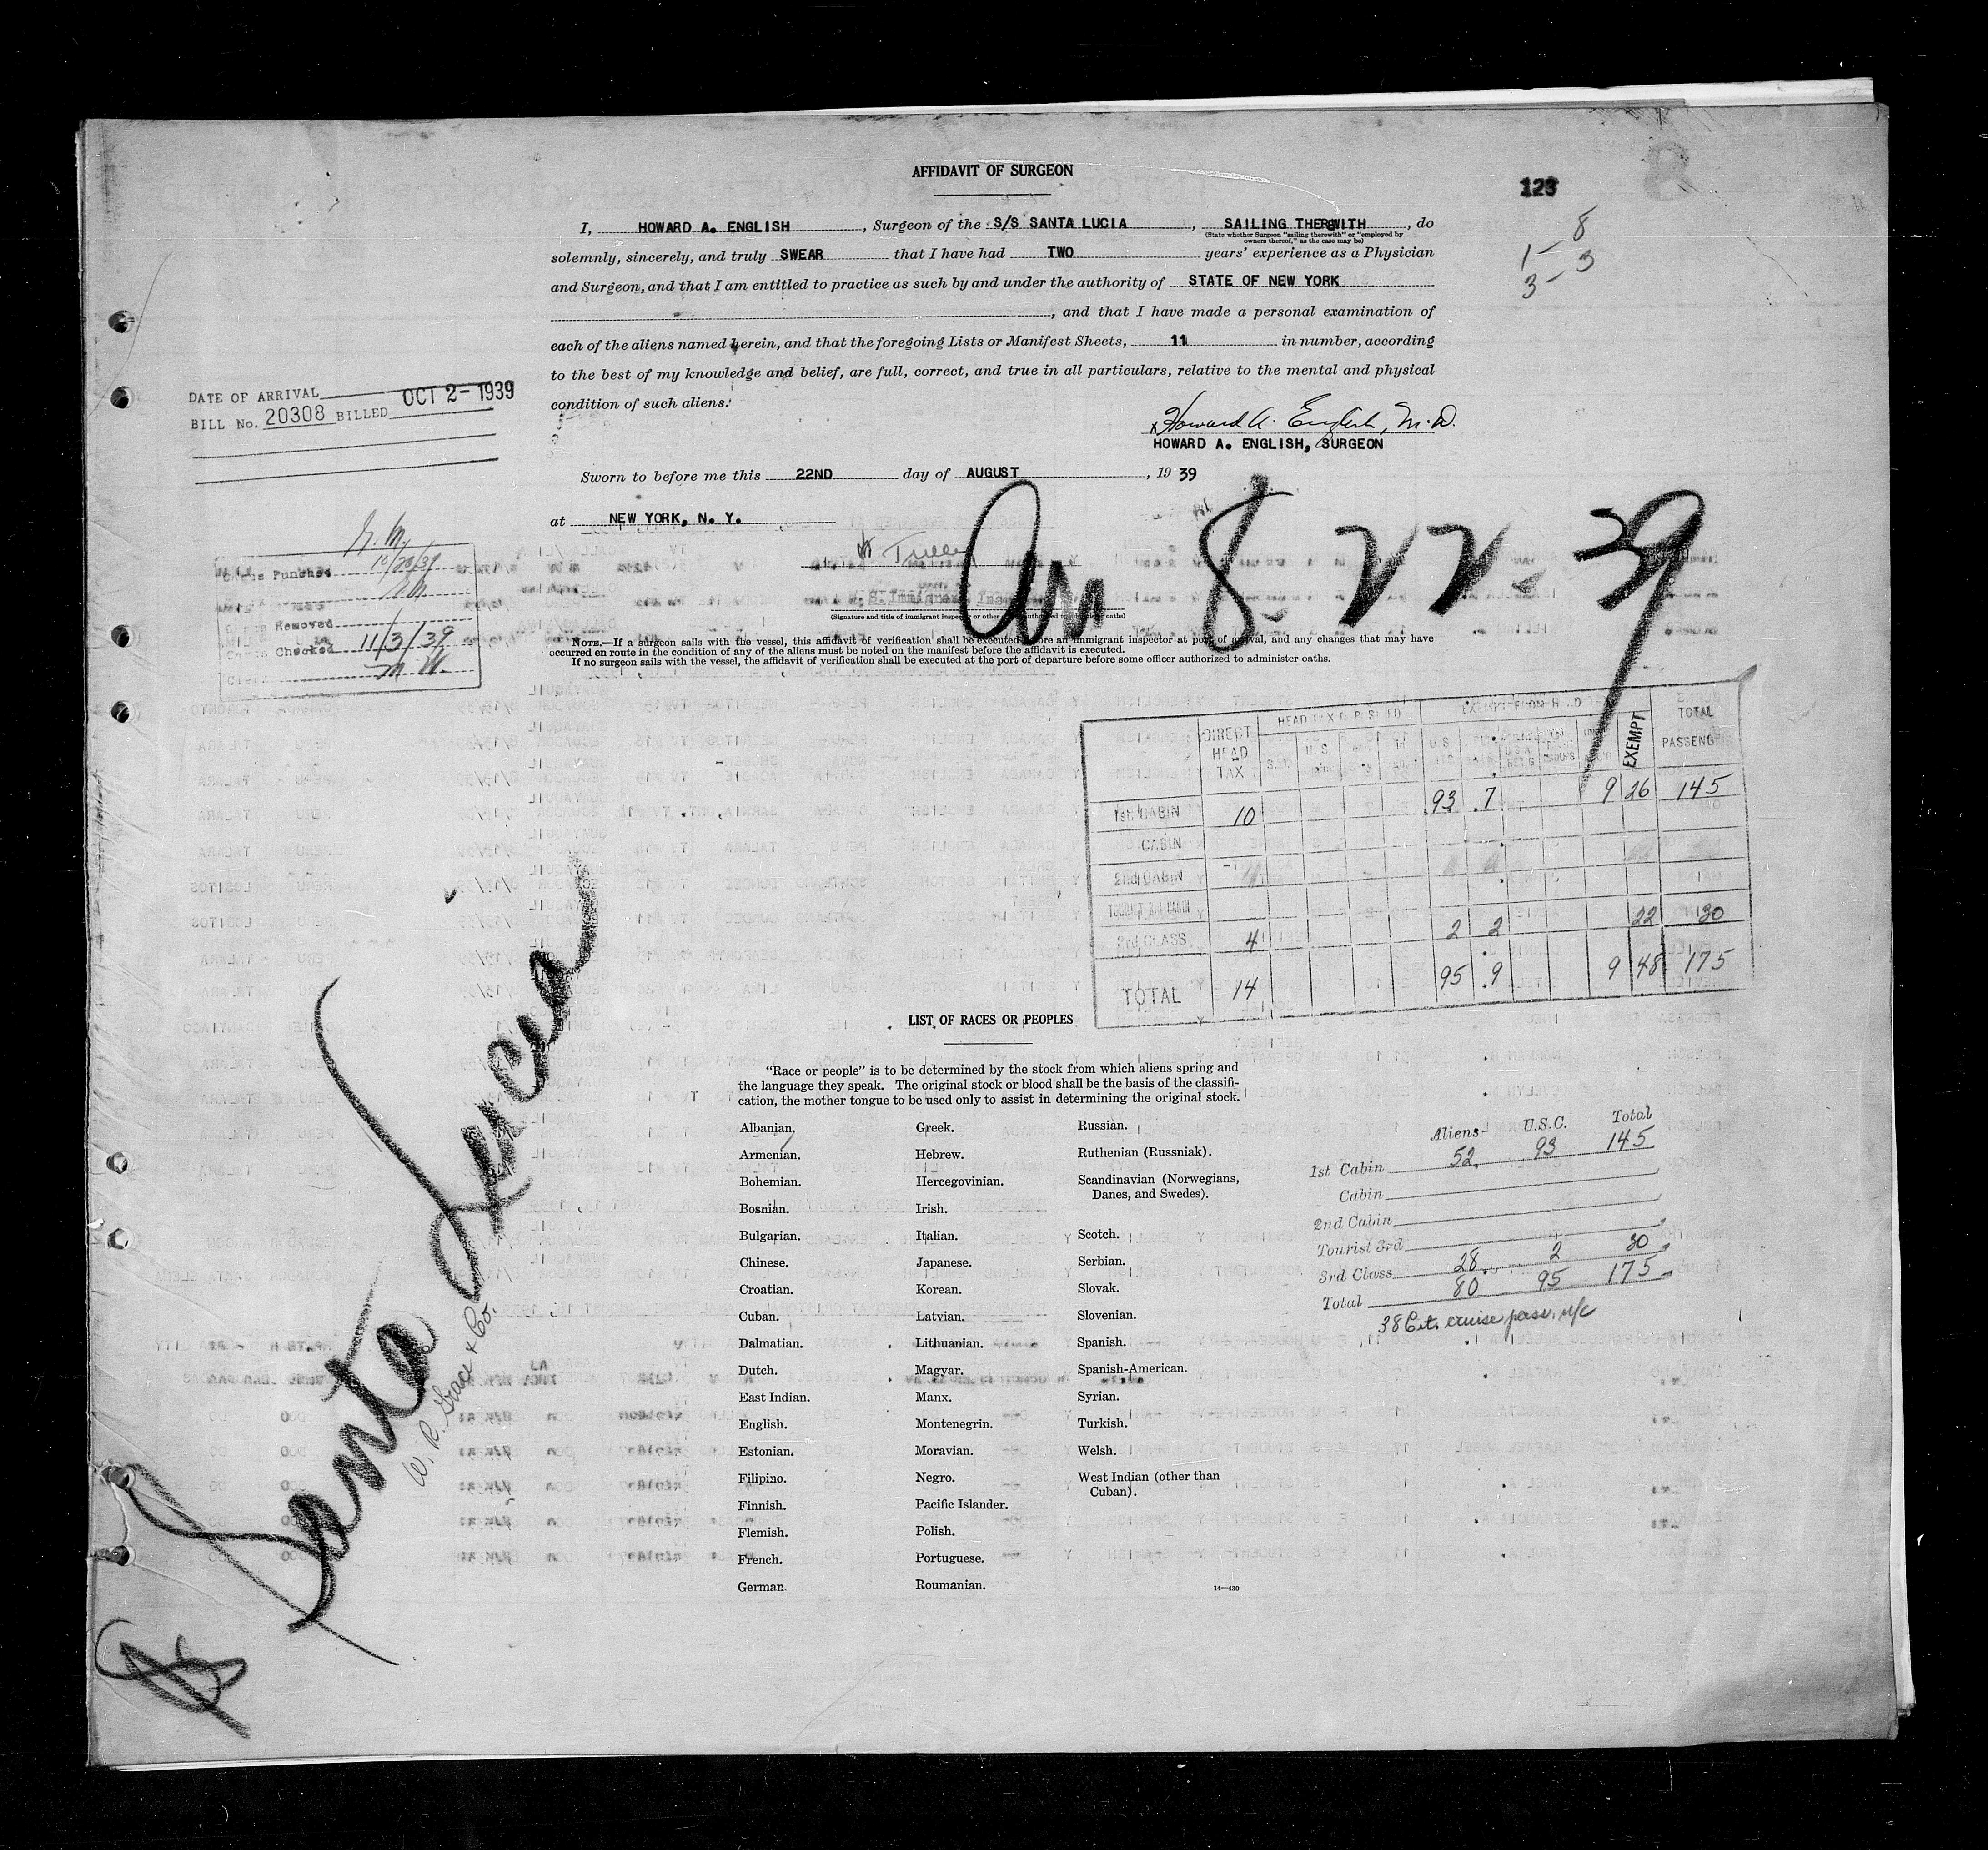 AFFIDAVIT OF SURGEON
123
8
1- 3
3-
I, HOWARD A. ENGLISH, Surgeon of the S/S SANTA LUCIA, SAILING THEREWITH, do
(State whether Surgeon "sailing therewith" or "employed by
owners thereof," as the case may be)
solemnly, sincerely, and truly SWEAR that I have had TWO years' experience as a Physician
and Surgeon, and that I am entitled to practice as such by and under the authority of STATE OF NEW YORK
, and that I have made a personal examination of
each of the aliens named herein, and that the foregoing Lists or Manifest Sheets, 11 in number, according
to the best of my knowledge and belief, are full, correct, and true in all particulars, relative to the mental and physical
condition of such aliens.
DATE OF ARRIVAL OCT 2-1939
BILL No. 20308 BILLED
Howard A. English, M.D.
HOWARD A. ENGLISH, SURGEON
Sworn to before me this 22ND day of AUGUST, 1939
at NEW YORK, N. Y.
Arr 8-22-39
Punched 10/20/39
Removed
Checked 11/3/39
(Signature and title of immigrant inspector or other oaths)
NOTE.—If a surgeon sails with the vessel, this affidavit of verification shall be executed before an immigrant inspector at port of arrival, and any changes that may have
occurred en route in the condition of any of the aliens must be noted on the manifest before the affidavit is executed.
If no surgeon sails with the vessel, the affidavit of verification shall be executed at the port of departure before some officer authorized to administer oaths.
DIRECT HEAD TAX EXEMPT TOTAL PASSENG
1st CABIN 10 93 7 9 26 145
CABIN
2nd CABIN
TOURIST 3rd CABIN
3rd CLASS 4 2 2 22 30
TOTAL 14 95 9 9 48 175
LIST OF RACES OR PEOPLES
"Race or people" is to be determined by the stock from which aliens spring and
the language they speak. The original stock or blood shall be the basis of the classifi-
cation, the mother tongue to be used only to assist in determining the original stock.
Albanian.
Armenian.
Bohemian.
Bosnian.
Bulgarian.
Chinese.
Croatian.
Cuban.
Dalmatian.
Dutch.
East Indian.
English.
Estonian.
Filipino.
Finnish.
Flemish.
French.
German.
Greek.
Hebrew.
Hercegovinian.
Irish.
Italian.
Japanese.
Korean.
Latvian.
Lithuanian.
Magyar.
Manx.
Montenegrin.
Moravian.
Negro.
Pacific Islander.
Polish.
Portuguese.
Roumanian.
Russian.
Ruthenian (Russniak).
Scandinavian (Norwegians,
Danes, and Swedes).
Scotch.
Serbian.
Slovak.
Slovenian.
Spanish.
Spanish-American.
Syrian.
Turkish.
Welsh.
West Indian (other than
Cuban).
14—430
Aliens U.S.C. Total
1st Cabin 52 93 145
Cabin
2nd Cabin
Tourist 3rd
3rd Class 28 2 30
Total 80 95 175
38 Cit. cruise pass.
SS Santa Lucia
W. R. Grace & Co.